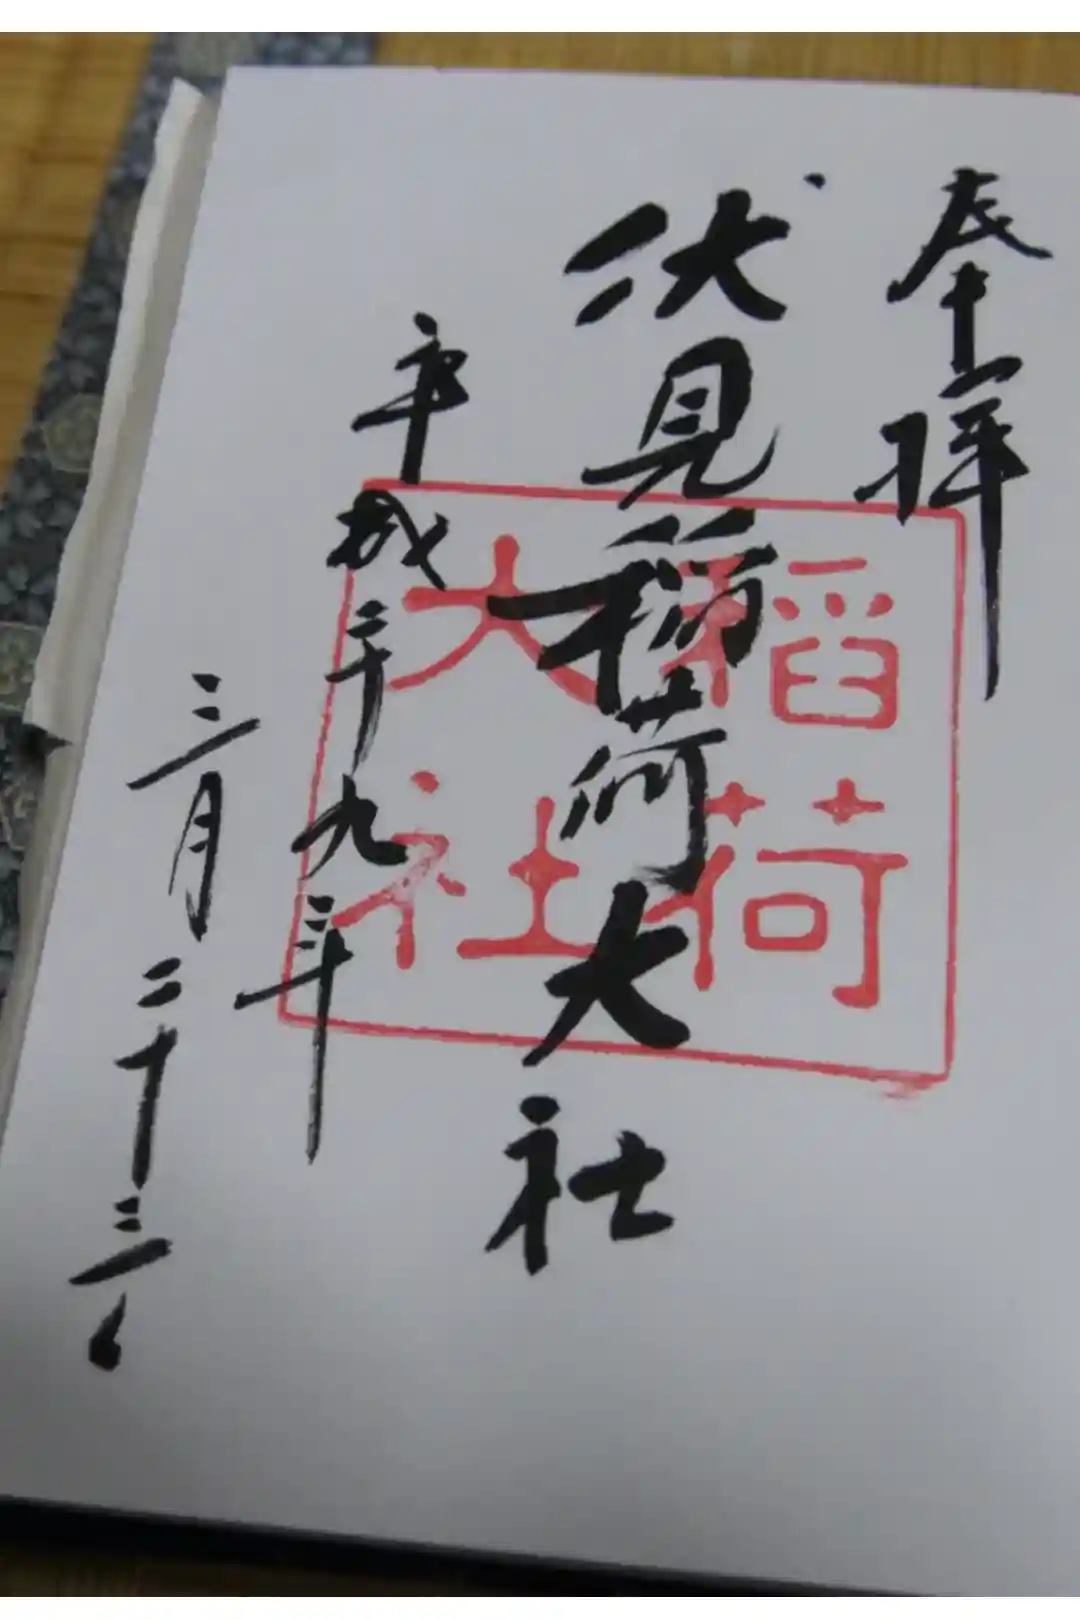 奉拝
伏見稲荷大社
稲荷
大社
平成二十九年
三月二十三日